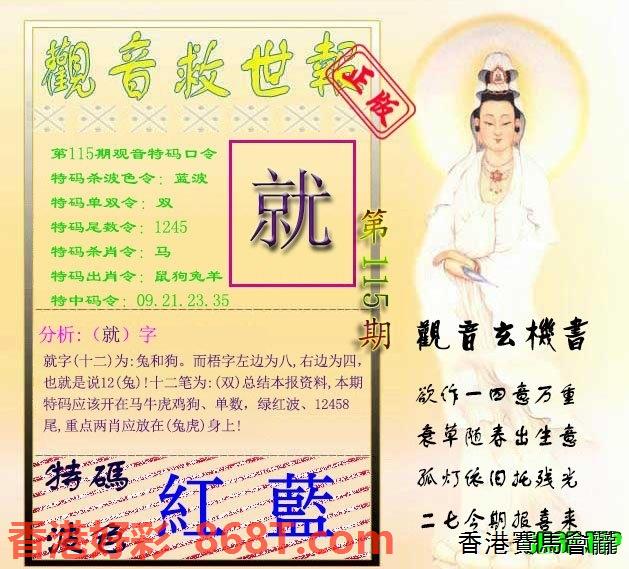 觀音救世報
正版
第115期观音特码口令
特码杀波色令: 蓝波
特码单双令: 双
特码尾数令: 1245
特码杀肖令: 马
特码出肖令: 鼠狗兔羊
特中码令: 09.21.23.35
就
第115期
分析:（就）字
就字(十二)为:兔和狗。而梧字左边为八,右边为四,
也就是说12(兔)!十二笔为:(双)总结本报资料,本期
特码应该开在马牛虎鸡狗、单数，绿红波、12458
尾,重点两肖应放在(兔虎)身上!
特碼
波色
紅 藍
香港好彩 868T.com
觀音玄機書
欲作一四意万重
衰草随春出生意
孤灯依旧托残光
二七今期报喜来
香港賽馬會